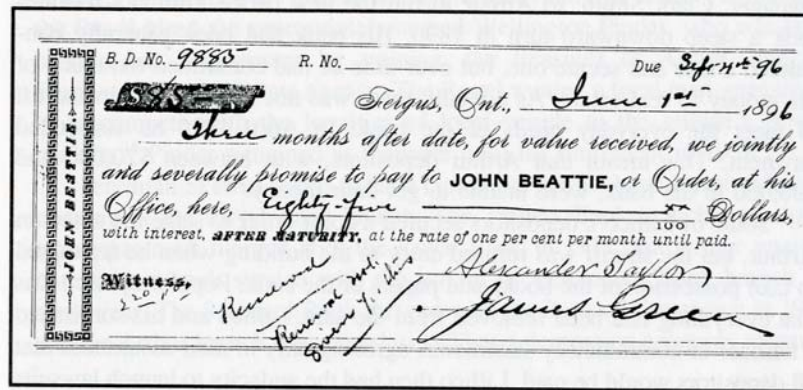 B. D. No. 9885 R. No. Due Sept 4th 96
$85
Fergus, Ont. June 1st 1896
Three months after date, for value received, we jointly
and severally promise to pay to JOHN BEATTIE, or Order, at his
Office, here, Eighty-five xx/100 Dollars,
with interest, AFTER MATURITY, at the rate of one per cent per month until paid.
Witness. Alexander Taylor
James Green
Renewal
JOHN BEATTIE.